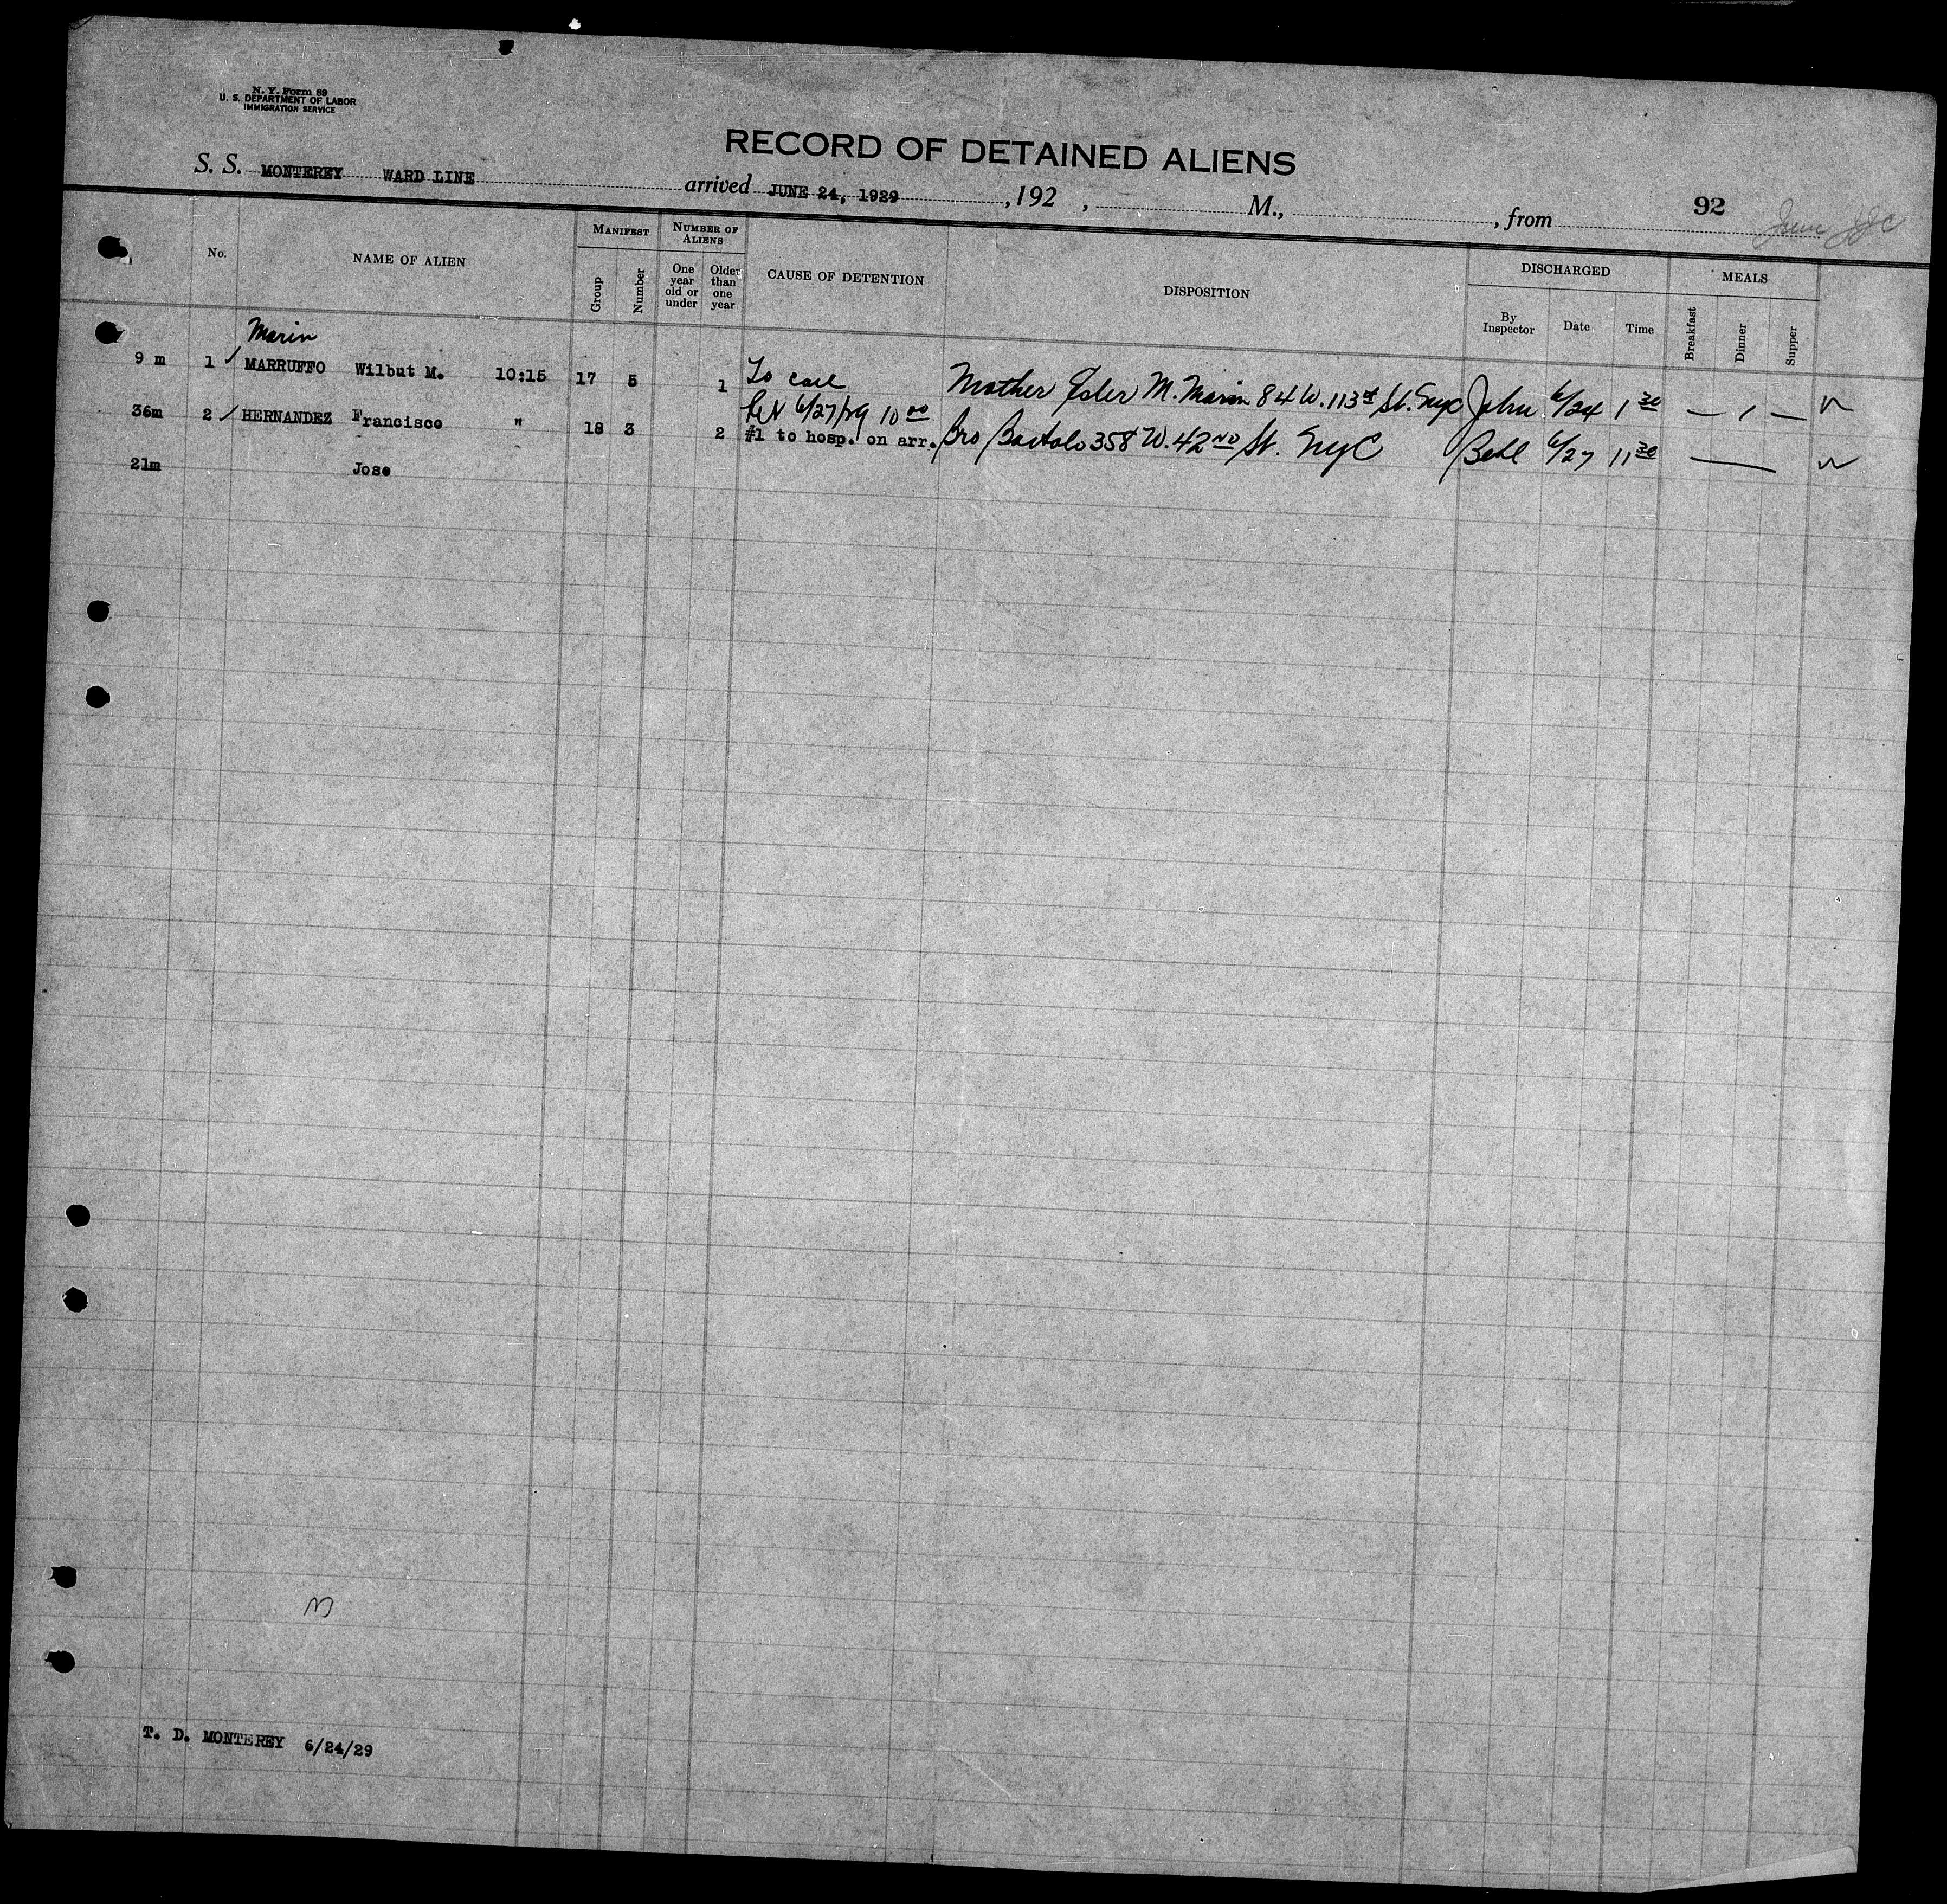 N. Y. Form 89
U. S. DEPARTMENT OF LABOR
IMMIGRATION SERVICE
RECORD OF DETAINED ALIENS
S. S. MONTEREY WARD LINE arrived JUNE 24, 1929 , 192 , M., , from 92
No. NAME OF ALIEN MANIFEST NUMBER OF ALIENS CAUSE OF DETENTION DISPOSITION DISCHARGED MEALS
Group Number One year old or under Older than one year By Inspector Date Time Breakfast Dinner Supper
Marin
9 m 1 ✓ MARRUFFO Wilbut M. 10:15 17 5 1 To call Mother Ester M. Marin 84 W. 113th St. NyC John 6/24 1 30
Rel 6/27/29 10 00
36m 2 ✓ HERNANDEZ Francisco " 18 3 2 #1 to hosp. on arr. Bro Bartolo 358 W. 42ND St. NyC 6/27 11 30
21m Jose
T. D. MONTEREY 6/24/29